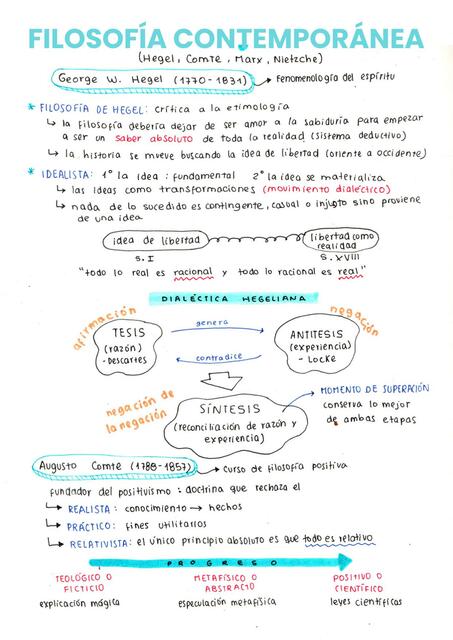 FILOSOFÍA CONTEMPORÁNEA
(Hegel, Comte, Marx, Nietzche)
George W. Hegel (1770-1831) → Fenomenología del espíritu
* FILOSOFÍA DE HEGEL: crítica a la etimología
↳ la filosofía debería dejar de ser amor a la sabiduría para empezar
a ser un saber absoluto de toda la realidad (sistema deductivo)
↳ la historia se mueve buscando la idea de libertad (oriente a occidente)
* IDEALISTA: 1º la idea: fundamental 2º la idea se materializa
↳ las ideas como transformaciones (movimiento dialéctico)
↳ nada de lo sucedido es contingente, casual o injusto sino proviene
de una idea
idea de libertad
libertad como
realidad
S. I
S. XVIII
"todo lo real es racional y todo lo racional es real"
DIALÉCTICA HEGELIANA
afirmación
TESIS
(razón)
- Descartes
genera
contradice
negación
ANTITESIS
(experiencia)
- Locke
negación de
la negación
SÍNTESIS
(reconciliación de razón y
experiencia)
MOMENTO DE SUPERACIÓN
conserva lo mejor
de ambas etapas
Augusto Comte (1788-1857) → Curso de filosofía positiva
fundador del positivismo: doctrina que rechaza el
↳ REALISTA: conocimiento → hechos
↳ PRÁCTICO: fines utilitarios
↳ RELATIVISTA: el único principio absoluto es que todo es relativo
PROGRESO
TEOLÓGICO O
FICTICIO
explicación mágica
METAFÍSICO O
ABSTRACTO
especulación metafísica
POSITIVO O
CIENTÍFICO
leyes científicas